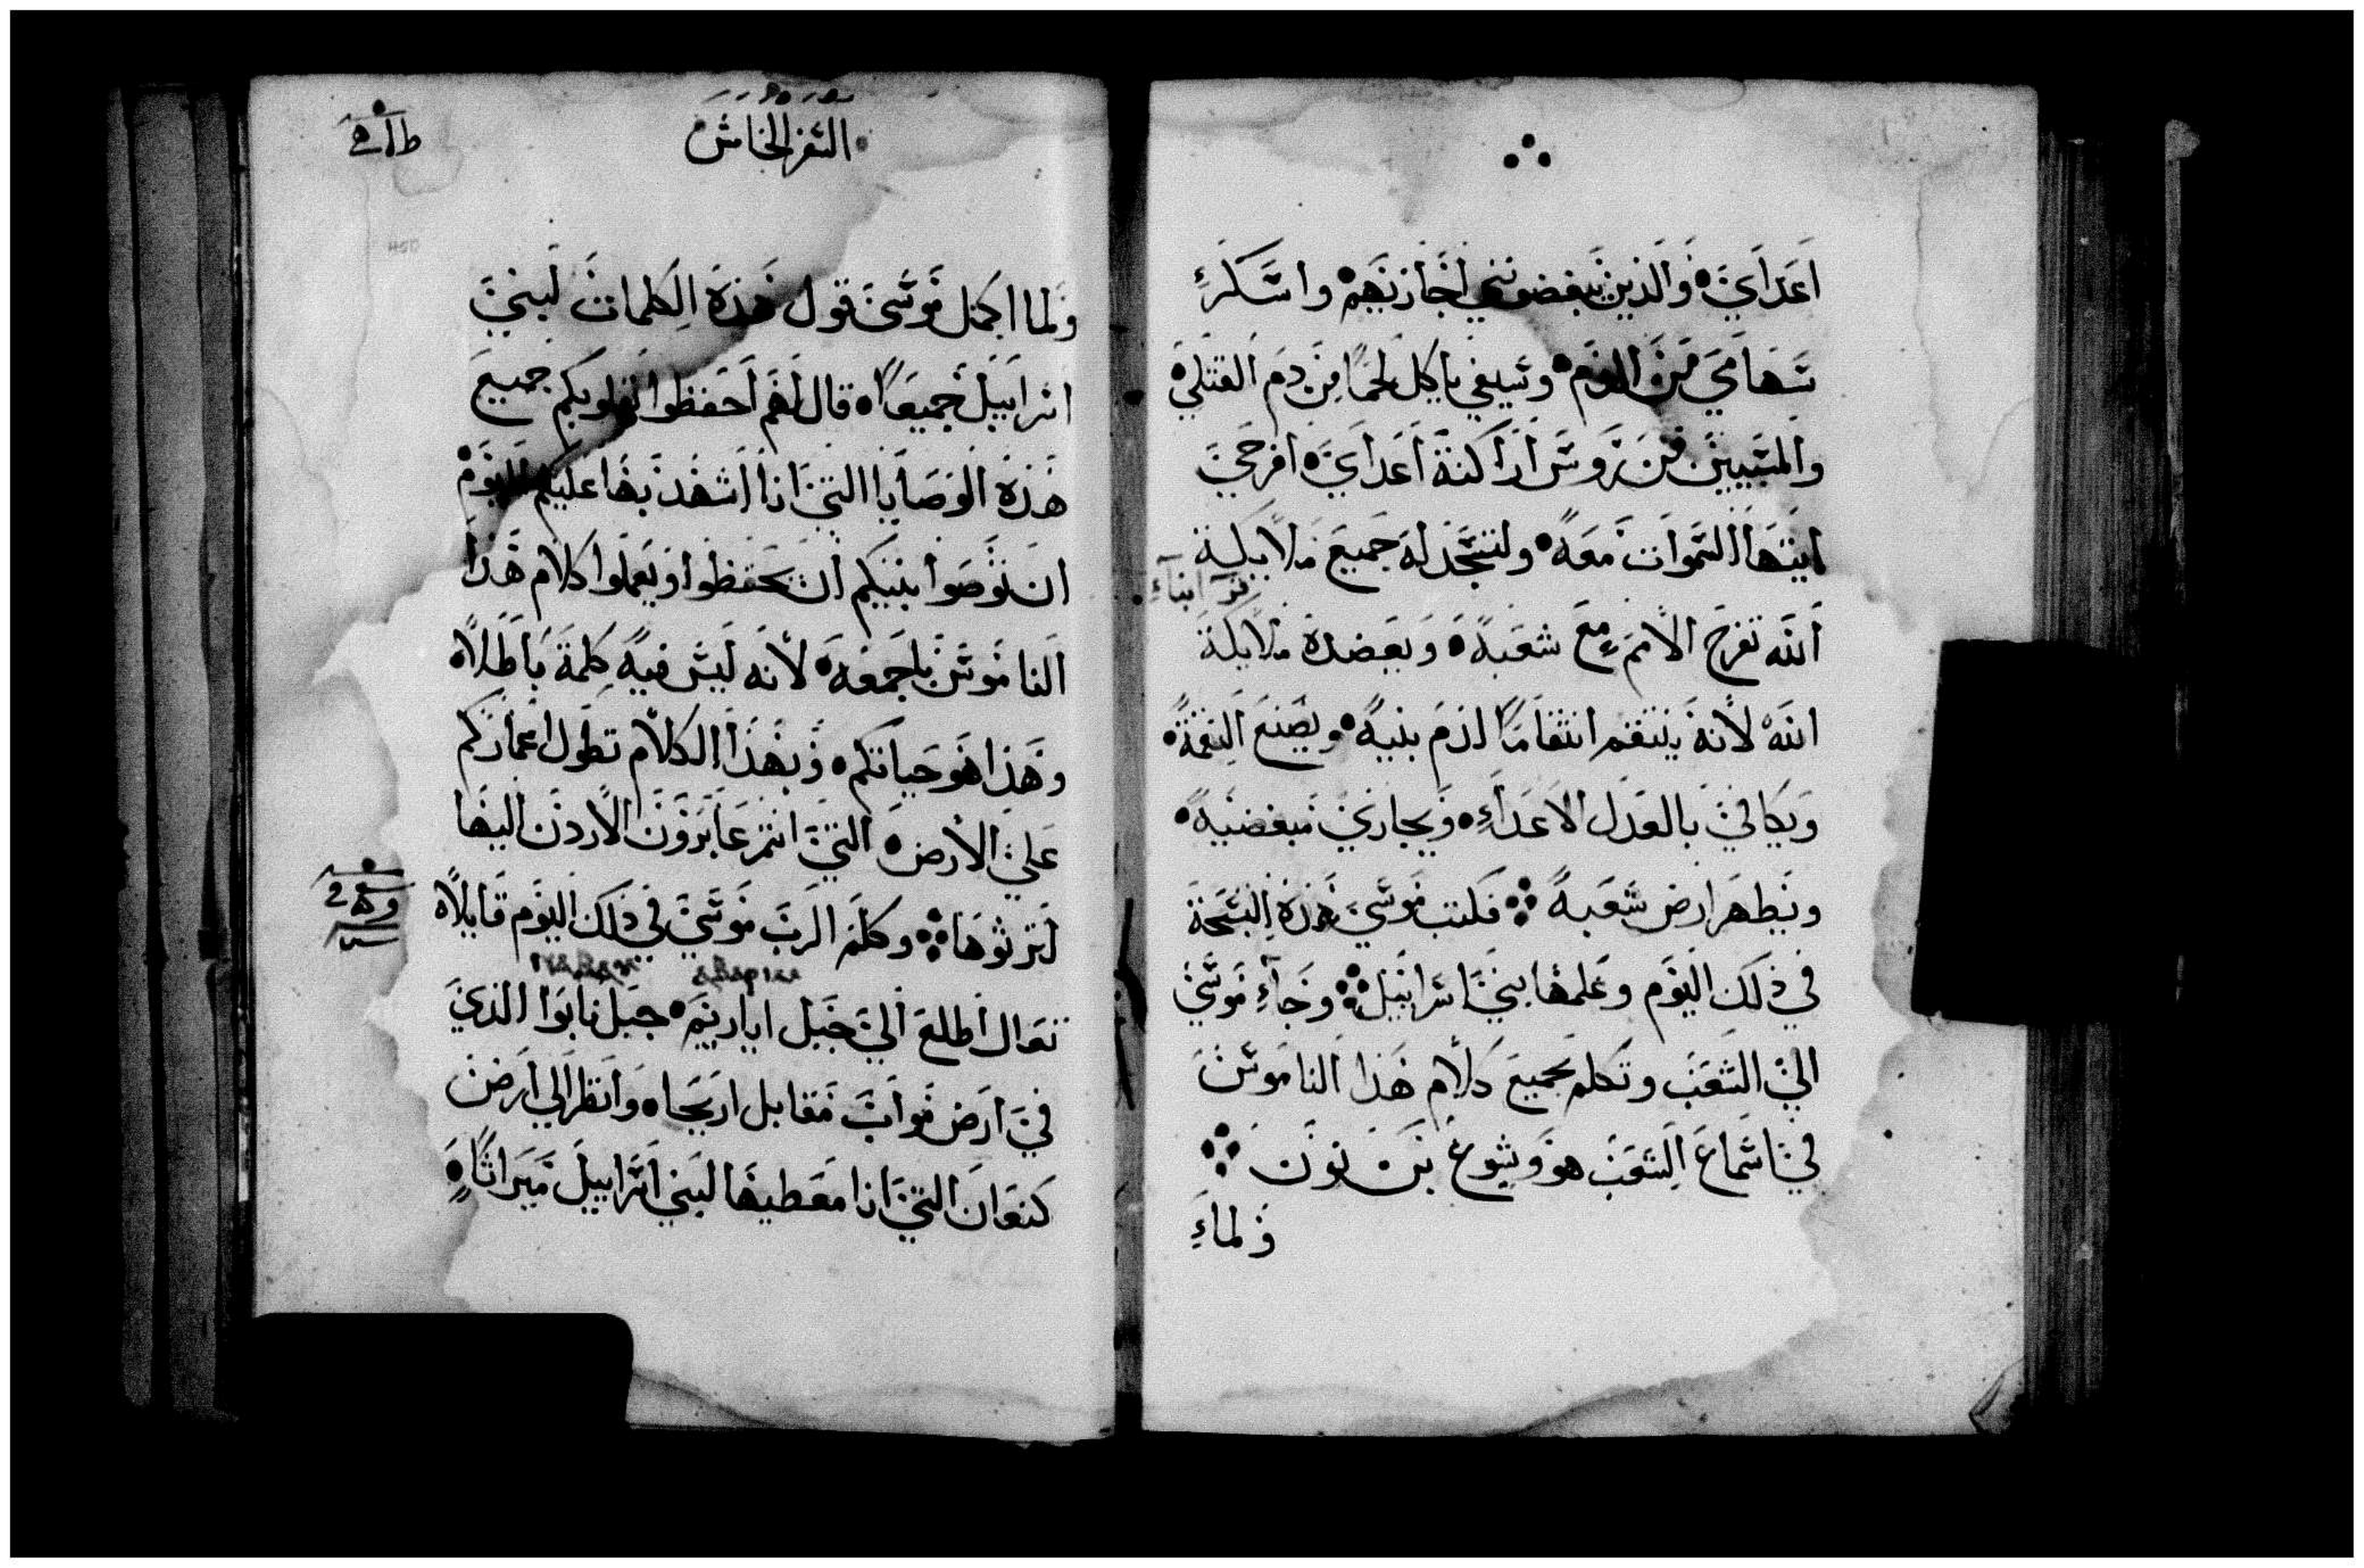 اعداي والذين يبغضونني اجازيهم واسكر
سهامي من الدم وسيفي ياكل لحما من دم القتلي
والمسبيين من روس اراكنة اعداي افرحي
ايتها السموات معه ولتسجد له جميع ملايكة
الله تفرح الامم مع شعبه وبعضده ملايكة
ابناء
الله لانه ينتقم انتقاما لدم بنيه ويصنع النقمة
ويكافي بالعدل الاعداء ويجازي مبغضيه
ويطهر ارض شعبه فكتب موسي هذه التسبحة
في ذلك اليوم وعلمها بني اسراييل وجاء موسي
الي الشعب وتكلم بجميع كلام هذا الناموس
في اسماع الشعب هو ويشوع بن نون
ولماء
السفر الخامس
ولما اكمل موسي قول هذه الكلمات لبني
اسراييل جميعا قال لهم احفظوا بقلوبكم جميع
هذه الوصايا التي انا اشهد بها عليكم اليوم
ان توصوا بنيكم ان تحفظوا ويعملوا كلام هذا
الناموس باجمعه لانه ليس فيه كلمة باطلا
وهذا هو حياتكم وبهذا الكلام تطول اعماركم
علي الارض التي انتم عابرون الاردن اليها
لترثوها وكلم الرب موسي في ذلك اليوم قايلا
تعال اطلع الي جبل اباريم جبل نابوا الذي
في ارض مواب مقابل اريحا وانظر الي ارض
كنعان التي انا معطيها لبني اسراييل ميراثا